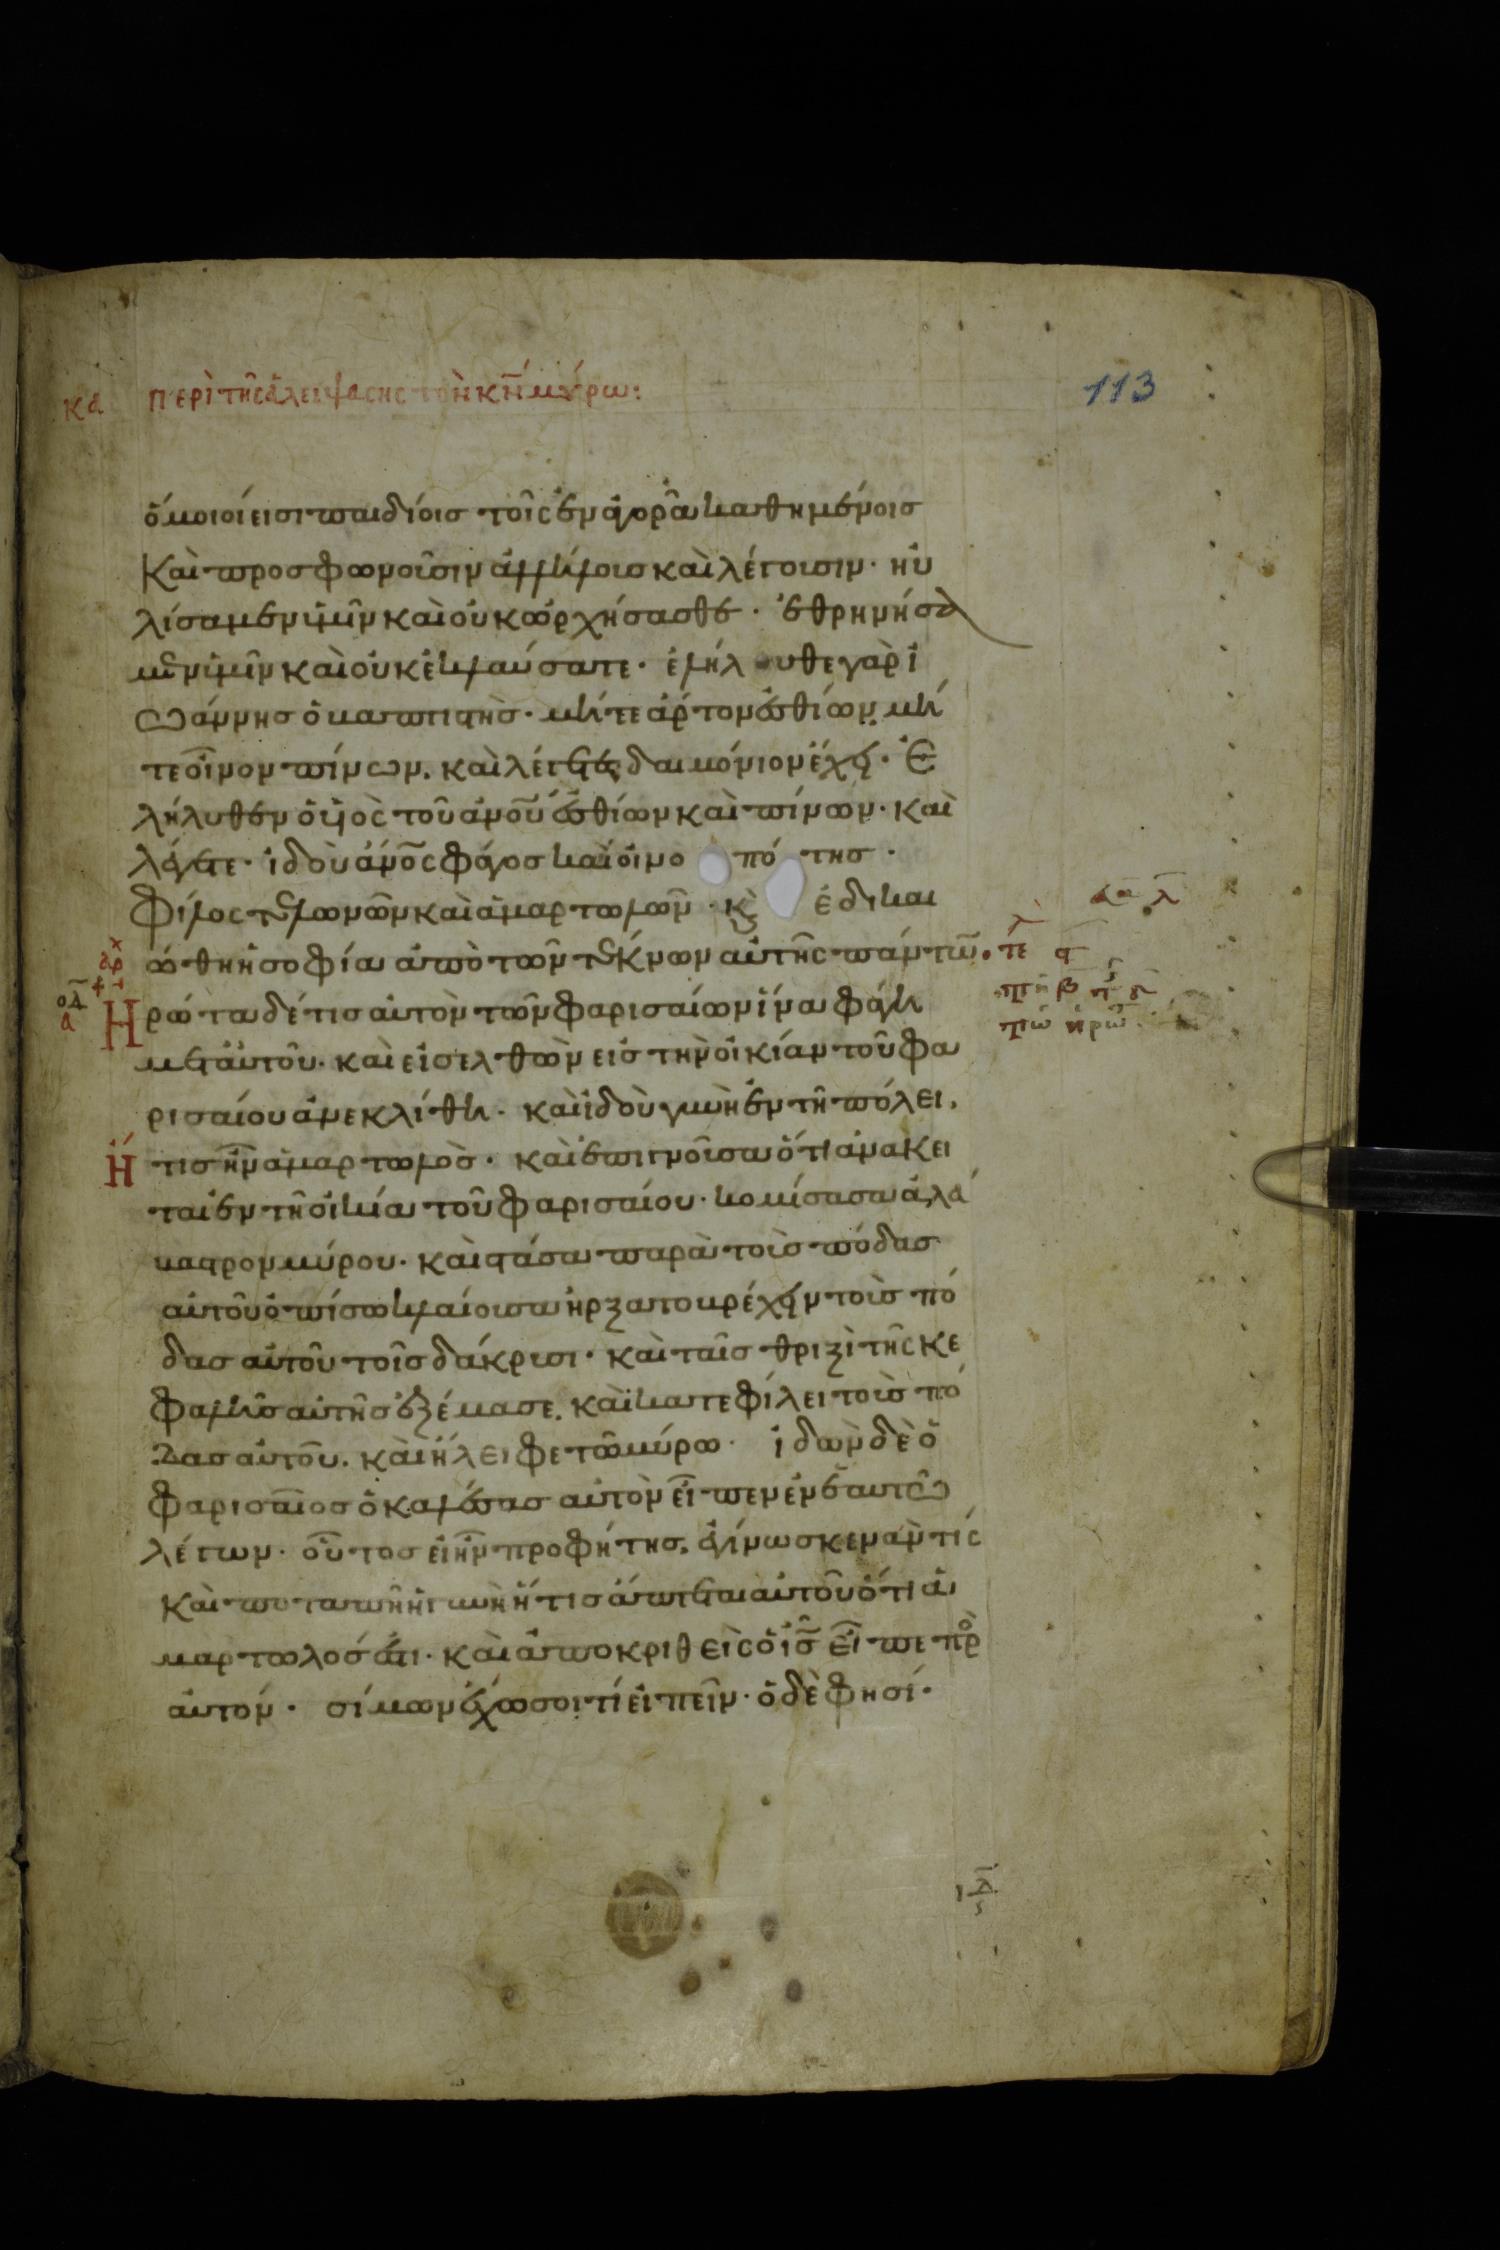 κα περὶ τῆς ἀλειψάσης τὸν κν̅ μύρω:
113
ὅμοιοί εισι παιδίοις τοῖς ἐν ἀγορᾶ καθημένοις
Καὶ προσφωνοῦσιν ἀλλήλοις καὶ λέγουσιν· ηὐ
λίσαμεν ὑμῖν καὶ οὐκ ὠρχήσασθε· ἐθρηνήσα
μεν ὑμῖν καὶ οὐκ ἐκλαύσατε· ἐλήλουθε γὰρ ἰ
ωάννης ὁ βαπτιστὴς· μήτε ἄρτον ἐσθίων μή
τε οἶνον πίνων. καὶ λέγετε, δαιμόνιον ἔχει· Ἐ
λήλυθεν ὁ υἱὸς τοῦ ἀνο̅υ ἐσθίων καὶ πίνων· καὶ
λέγετε· ἰδοὺ ἀνο̅ς φάγος καὶ οἰνοπότης·
Φίλος τελωνῶν καὶ ἁμαρτωλῶν· κὲ ἐδικαι
ώθη ἡ σοφία ἀπὸ τῶν τέκνων αὐτῆς πάντω̅·
Ἠρώτα δέ τις αὐτὸν τῶν φαρισαίων ἵνα φάγη
μετ αὐτοῦ· καὶ εἰσελθὼν εἰς τὴν οἰκίαν τοῦ φα
ρισαίου ἀνεκλίθη· καὶ ἰδοὺ γυνὴ ἐν τῆ πόλει,
Ἥτις ἦν ἁμαρτωλὸς· καὶ ἐπιγνοῦσα ὅτι ἀνάκει
ται ἐν τῆ οἰκία τοῦ φαρισαίου· κομίσασα ἀλά
βαστρον μύρου· καὶ στάσα παρὰ τοὺς πόδας
αὐτοῦ ὀπίσω κλαίουσα ἤρξατο βρέχειν τοὺς πό
δας αὐτοῦ τοῖς δάκρυσι· καὶ ταῖς θριξὶ τῆς κε
φαλῆς αὐτῆς ἐξέμασε. καὶ κατεφίλει τοὺς πό
δας αὐτοῦ. καὶ ἤλειφε τῶ μύρω· ἰδὼν δὲ ὁ
φαρισαῖος ὁ καλέσας αὐτὸν εἶπεν ἐν ἑαυτῶ
λέγων· οὗτος εἰ ἦν προφήτης, ἐγίνωσκεν ἂν τίς
Καὶ ποταπὴ ἡ γυνὴ ἥτις ἅπτεται αὐτοῦ ὅτι ἁ
μαρτωλός ἐστι· καὶ ἀποκριθεὶς ὁ ἰς̅ εἶπε πρὸ
αὐτόν· σίμων ἔχω σοι τί εἰπεῖν· ὁ δὲ φησί·